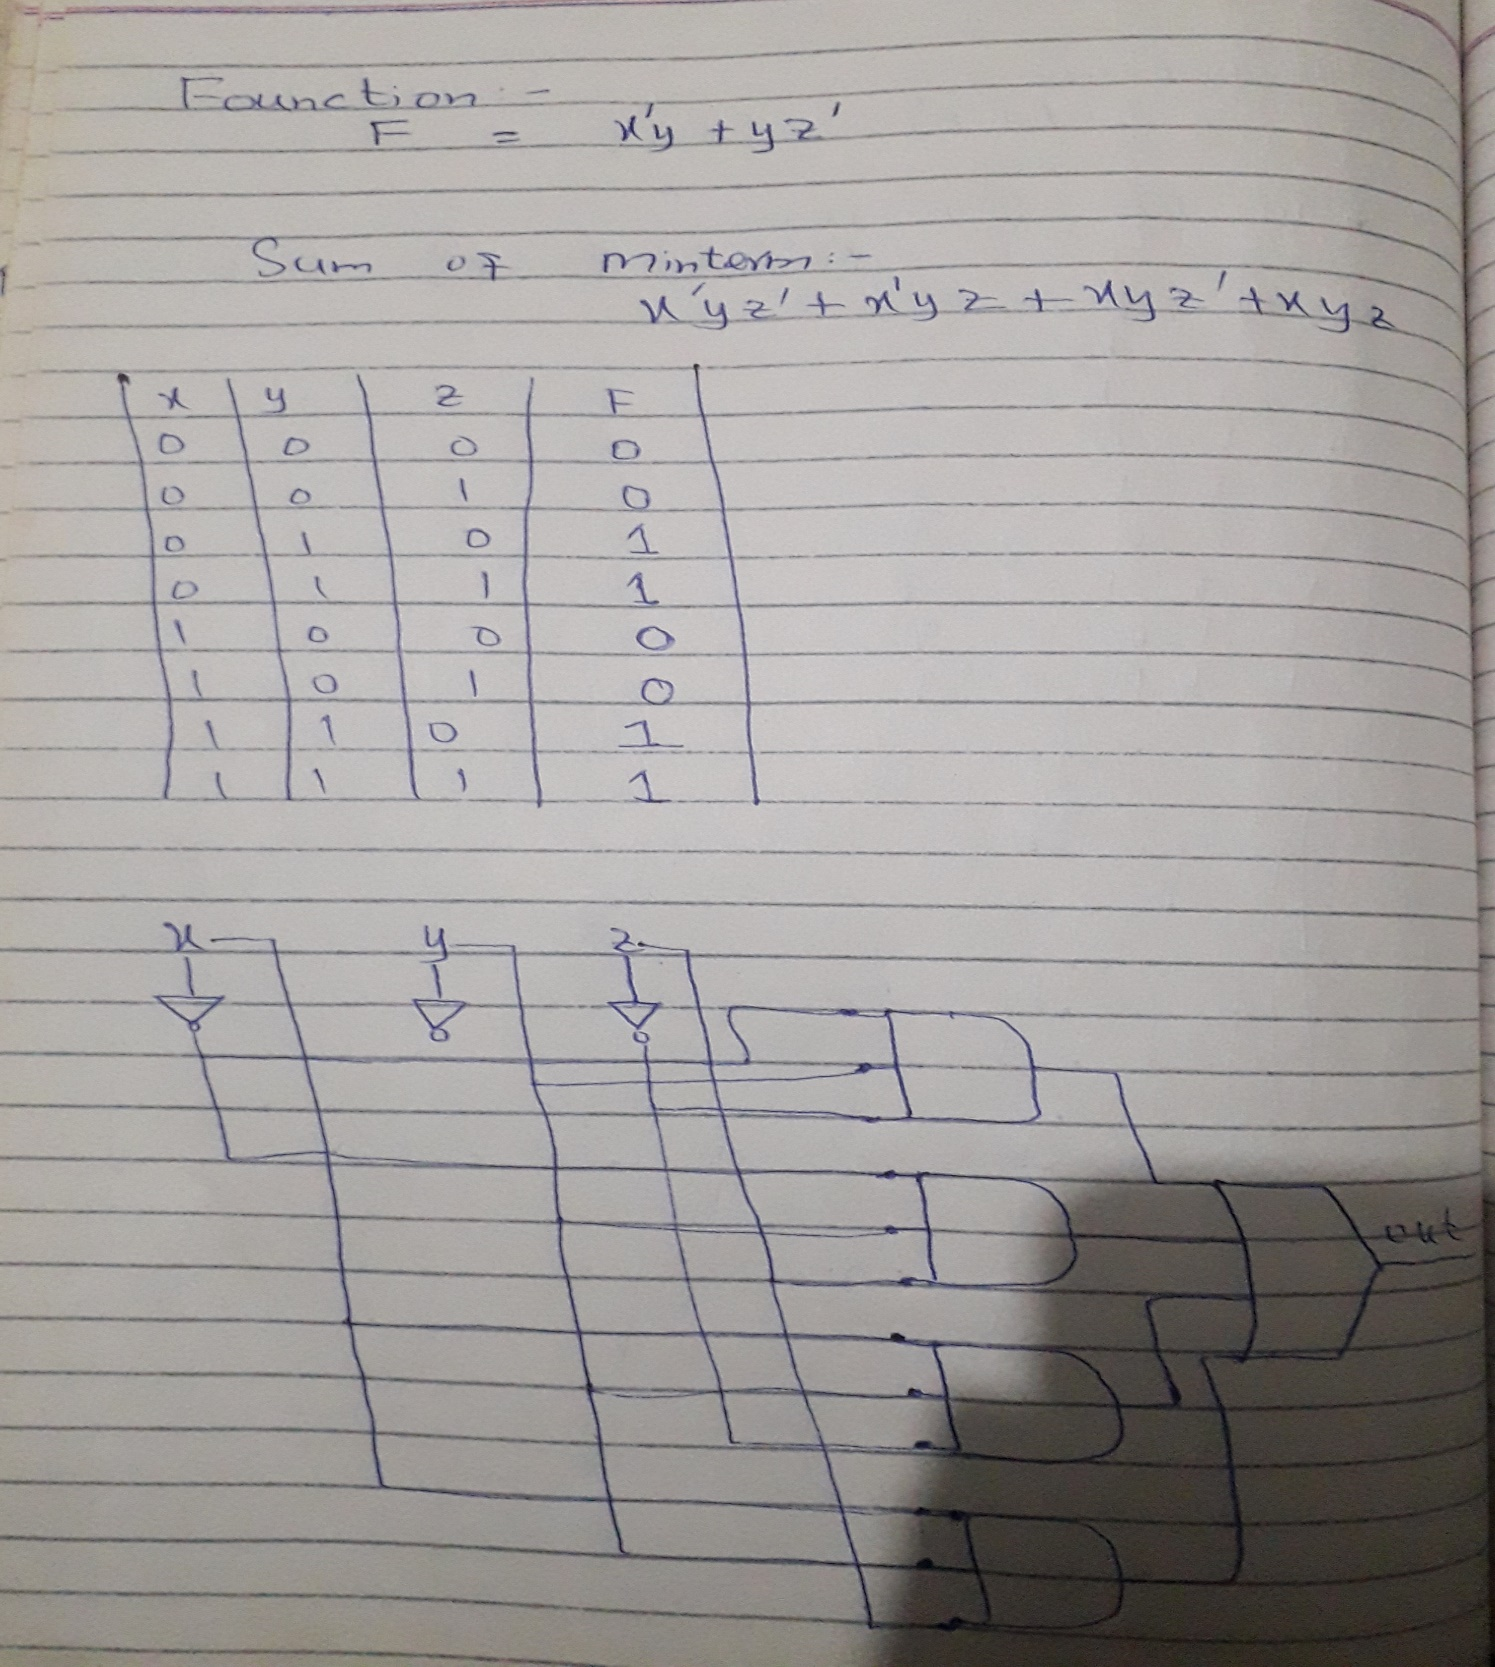 Founction :-
F = x'y + yz'
Sum of minterm :-
x'yz' + x'yz + xyz' + xyz
x y z F
0 0 0 0
0 0 1 0
0 1 0 1
0 1 1 1
1 0 0 0
1 0 1 0
1 1 0 1
1 1 1 1
x y z
out